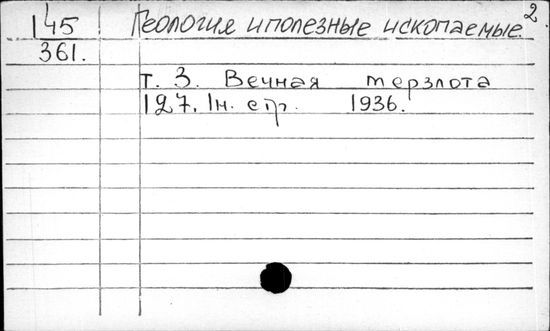 145 Геология и полезные ископаемые. 2
361.
т. 3. Вечная мерзлота
127. 1н. стр. 1936.